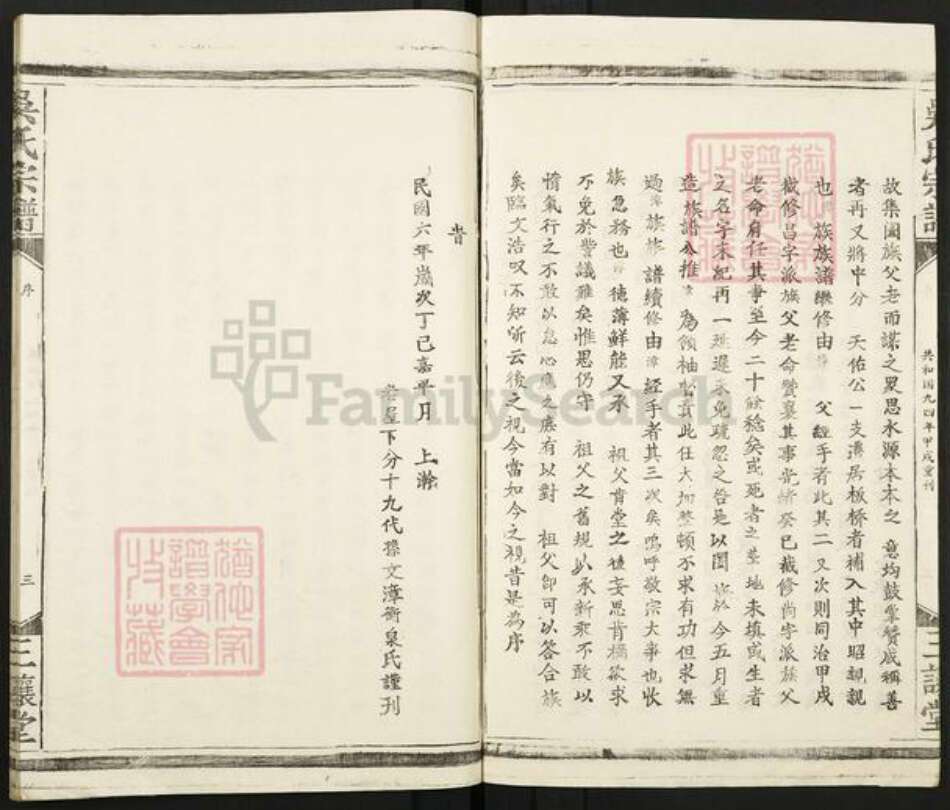 吳氏宗譜
三讓堂
共和国九四年甲戌重刊
故集闔族父老而謀之眾思水源本本之 意均鼓掌贊成稱善
者再又將中分 天佑公一支溝居板桥者補入其中昭親親
也 族族譜繼修由 父經手者此其二又次則同治甲戌
嶶修昌字派族父老命贊襄其事光緒癸巳嶶修尚字派族父
老命肩任其事至今二十餘稔矣或死者之塟地未填或生者
之名字未紀再一延遲未免疏忽之咎是以闔族於今五月重
造族譜公推 為領袖當負此任大加整頓不求有功但求無
過 族族譜續修由 經手者其三次矣嗚呼敬宗大事也收
族急務也 德薄鮮能又承 祖父肯堂之後妄思肯構欲求
不免於訾議難矣惟思仍守 祖父之舊規以承新乘不敢以
惰氣行之不敢以怠心應之庶有以對 祖父即可以答合族
矣臨文浩叹不知所云後之视今當如今之視昔是為序
旹
民國六年歲次丁巳嘉平月 上澣
老屋下分十九代孫文漳衛泉氏謹刊
吳氏宗譜
序
三
三讓堂
FamilySearch